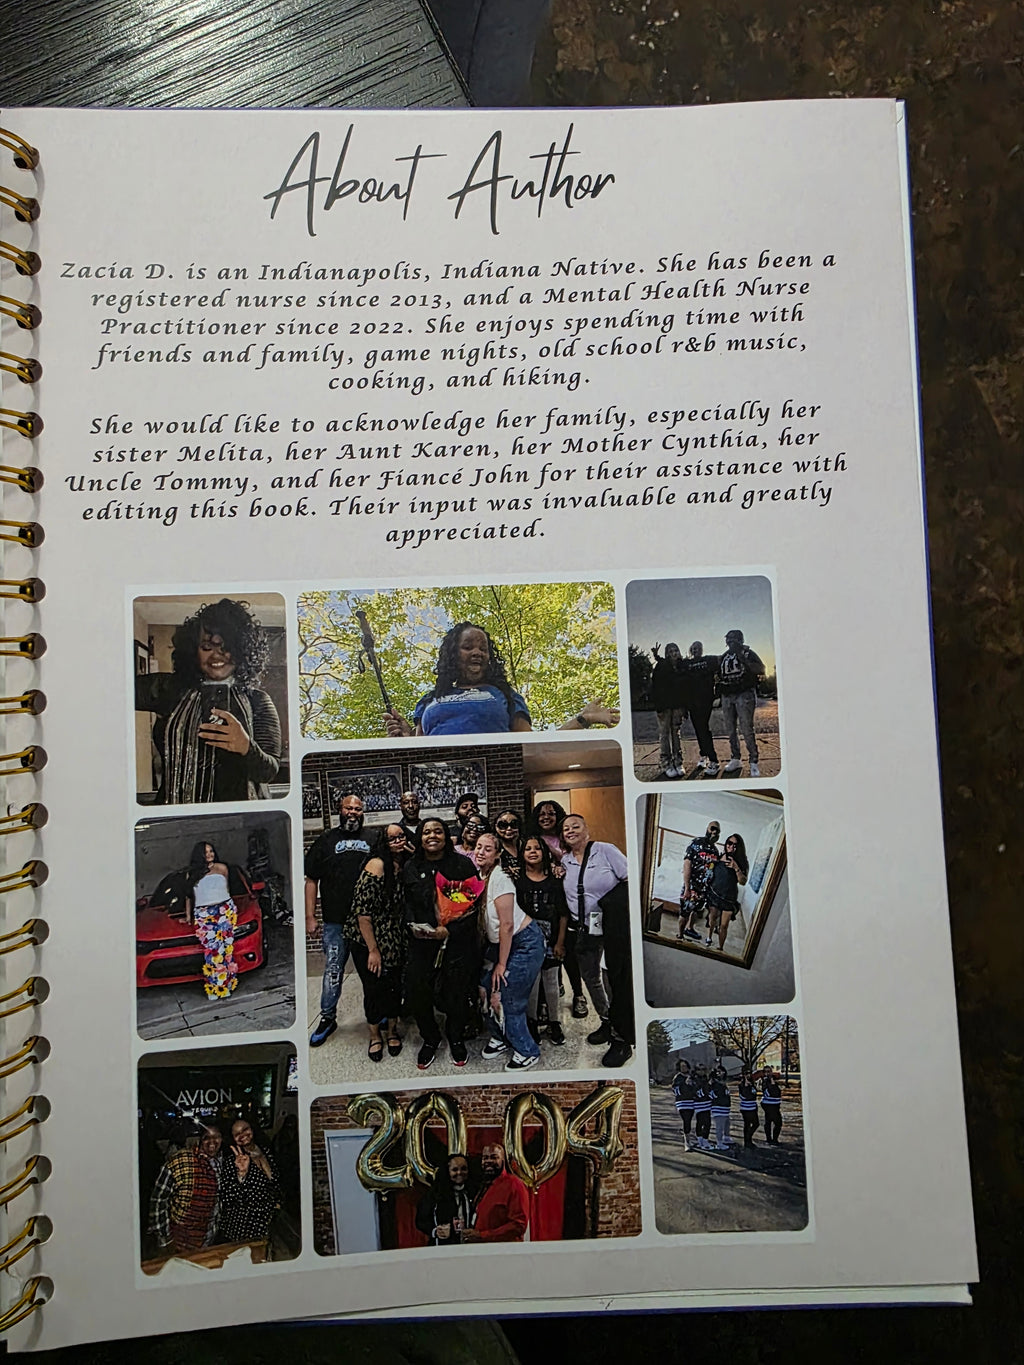 About Author
Zacia D. is an Indianapolis, Indiana Native. She has been a
registered nurse since 2013, and a Mental Health Nurse
Practitioner since 2022. She enjoys spending time with
friends and family, game nights, old school r&b music,
cooking, and hiking.
She would like to acknowledge her family, especially her
sister Melita, her Aunt Karen, her Mother Cynthia, her
Uncle Tommy, and her Fiancé John for their assistance with
editing this book. Their input was invaluable and greatly
appreciated.
AVION
TEQUILA
2004